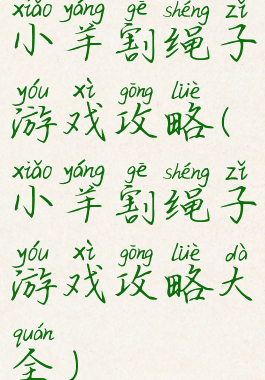 xiǎo yáng gē shéng zǐ
小羊割绳子
yóu xì gōng lüè
游戏攻略(
xiǎo yáng gē shéng zǐ
小羊割绳子
yóu xì gōng lüè dà
游戏攻略大
quán
全)